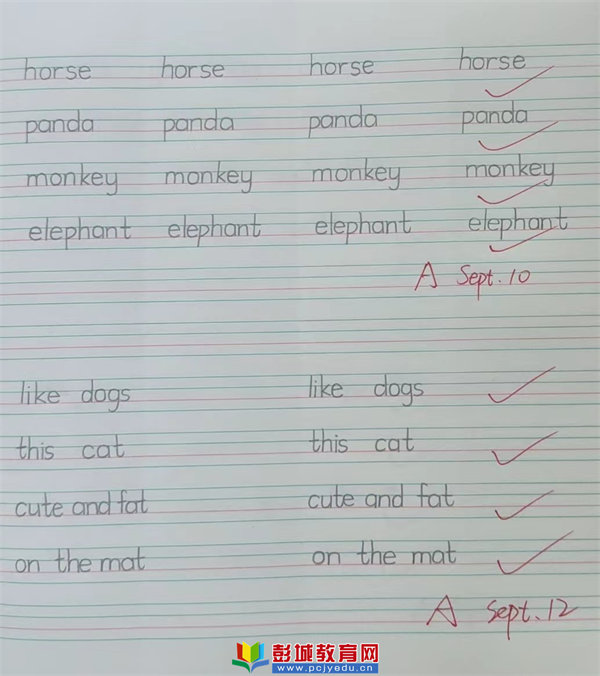 horse horse horse horse
panda panda panda panda
monkey monkey monkey monkey
elephant elephant elephant elephant
A Sept. 10
like dogs like dogs
this cat this cat
cute and fat cute and fat
on the mat on the mat
A Sept. 12
彭城教育网
www.pcjyedu.cn